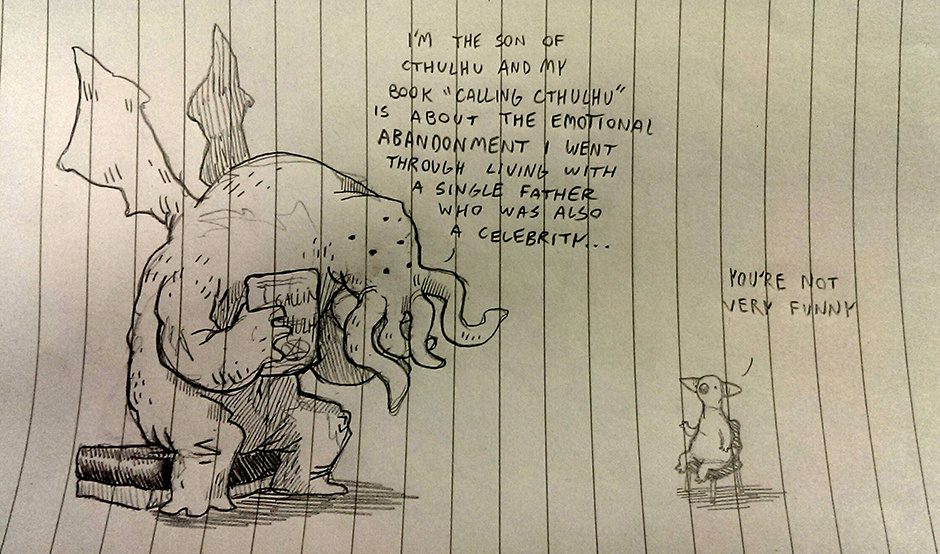 I'M THE SON OF
CTHULHU AND MY
BOOK "CALLING CTHULHU"
IS ABOUT THE EMOTIONAL
ABANDONMENT I WENT
THROUGH LIVING WITH
A SINGLE FATHER
WHO WAS ALSO
A CELEBRITY...
YOU'RE NOT
VERY FUNNY
CALLIN
THULH